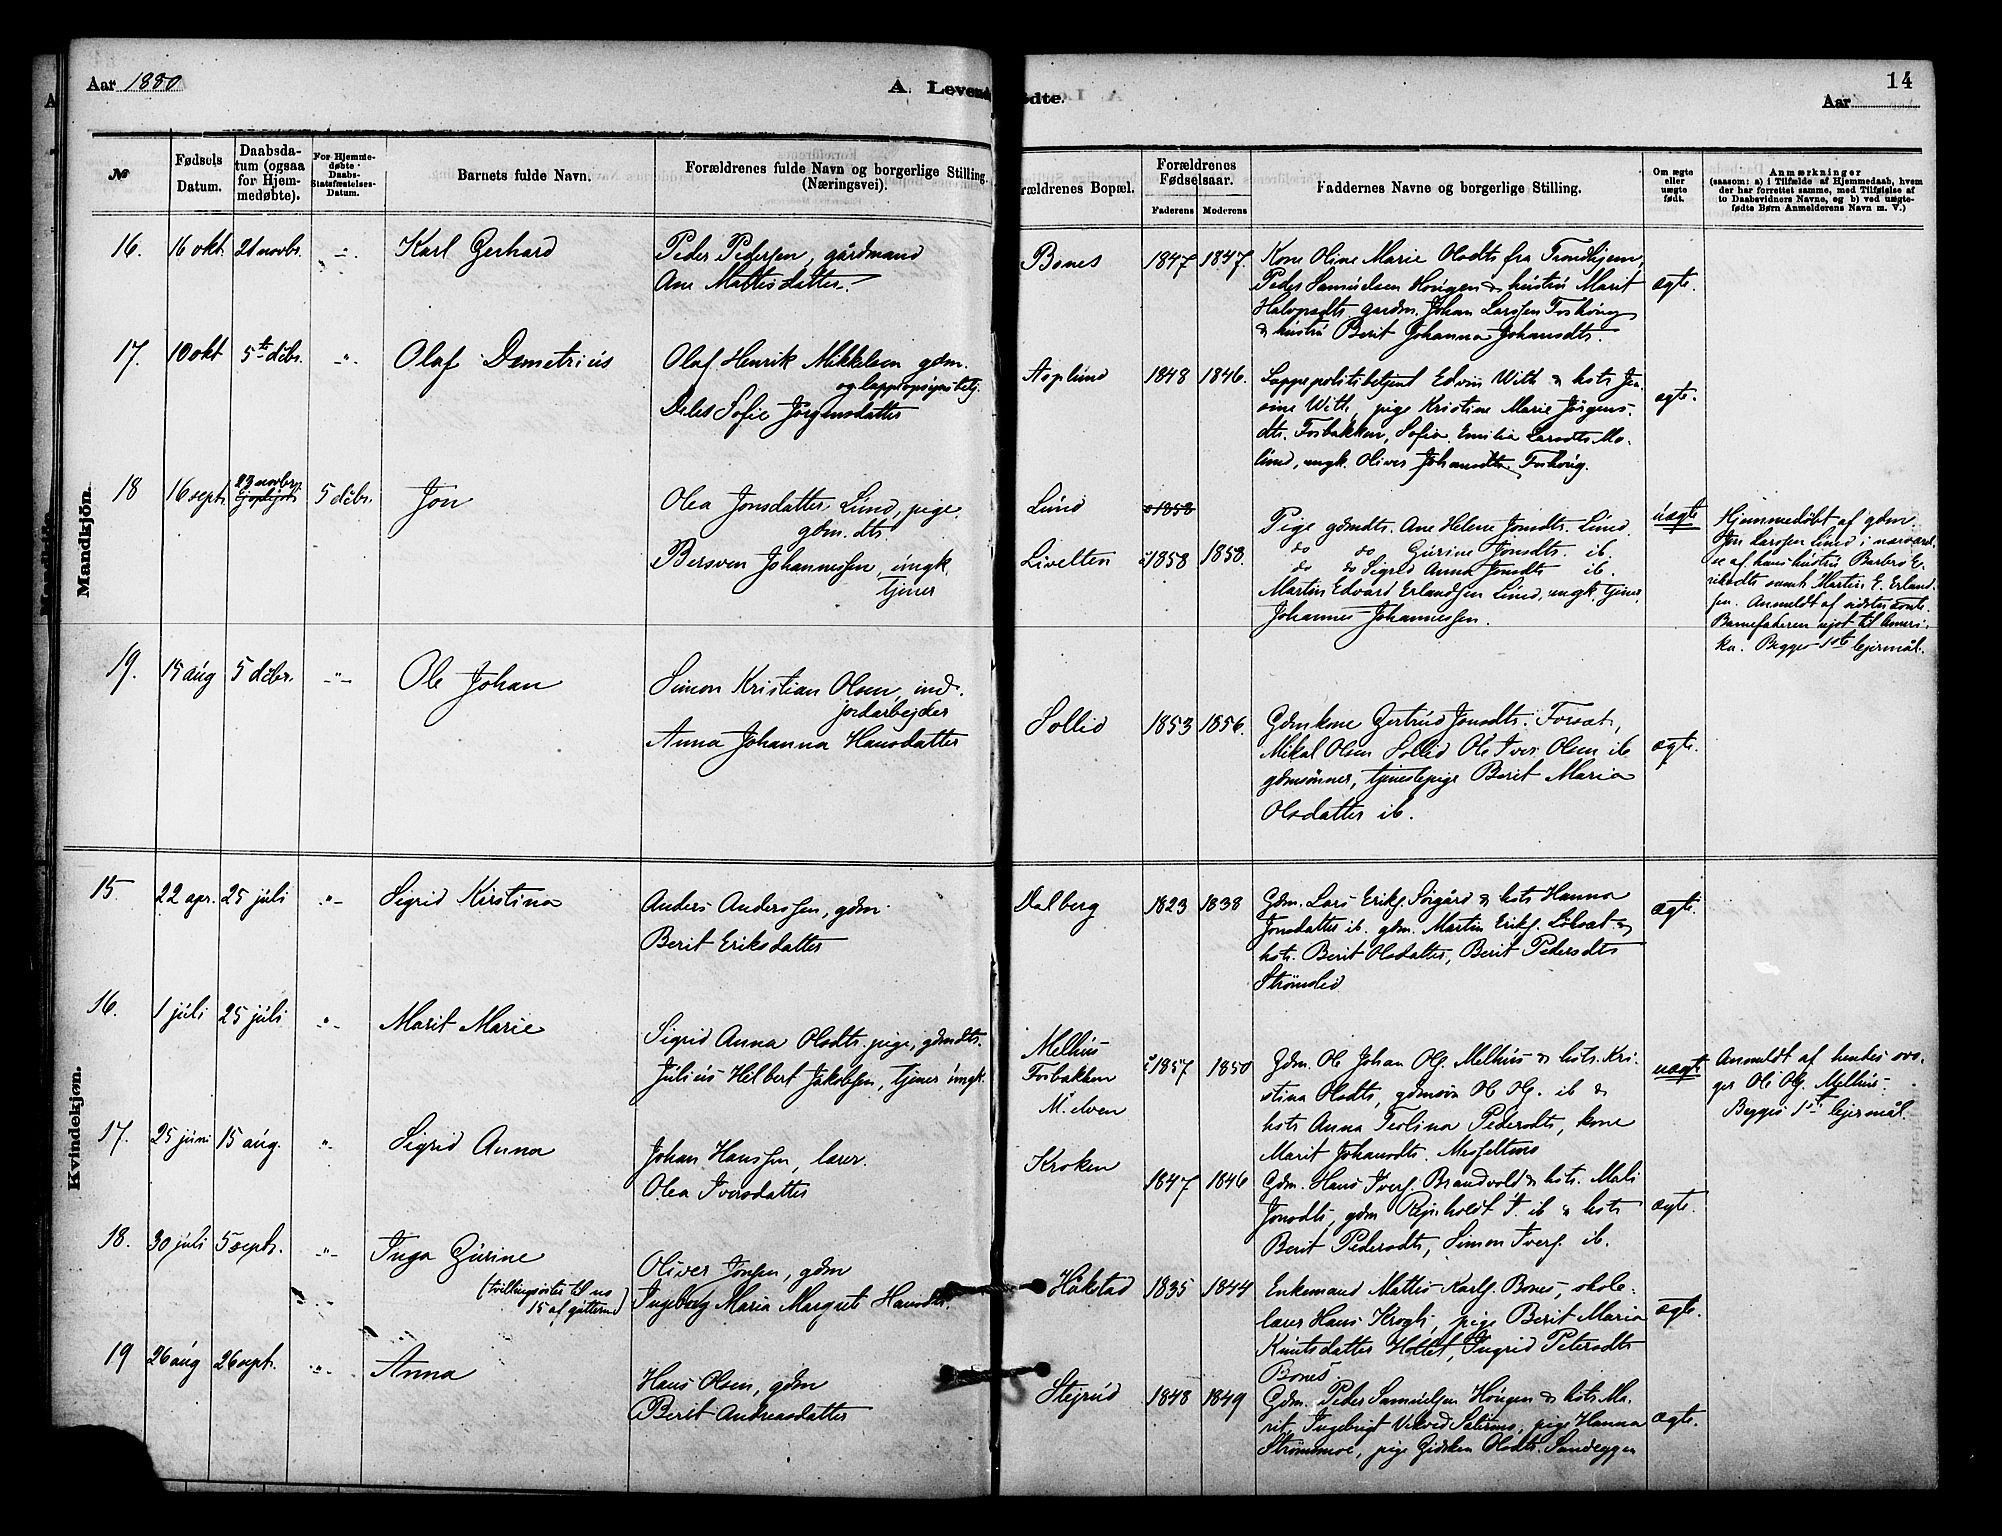 Aar 1880
A. Levendefødte.
14
Aar
№
Fødsels Datum.
Daabsdatum (ogsaa for Hjemmedøbte).
For Hjemmedøbte Daabs-Statsfæstelses-Datum.
Barnets fulde Navn.
Forældrenes fulde Navn og borgerlige Stilling. (Næringsvei).
Forældrenes Bopæl.
Forældrenes Fødselsaar.
Faderens
Moderens
Faddernes Navne og borgerlige Stilling.
Om ægte eller uægte født.
Anmærkninger
(saasom: a) i Tilfælde af Hjemmedaab, hvem der har forrettet samme, med Tilføielse af to Daabsvidners Navne, og b) ved uægtefødte Børn Anmelderens Navn m. V.)
Mandkjön.
16. 16 okt. 21 novbr. -"- Karl Gerhard
Peder Pedersen, gårdmand
Ane Mattisdatter.
Bones 1847 1847.
Kone Oline Marie Olsdts fra Trondhjem,
Peder Samuelsen Hougen & hustru Marit
Halvorsdts. gardm. Johan Larssen Foshoug
& hustru Berit Johanna Johansdts.
ægte.
17. 10 okt 5te decbr. -"- Olaf Demetrius
Olaf Henrik Mikkelsen gdm.
og lappopsynsbetj.
Deles Sofie Jørgensdatter
Asplund 1848 1846.
Lappepolitibetjent Edvin With & hstr Je-
sine With, pige Kristine Marie Jørgens-
dts. Fosbakken, Sofia Emilia Larsdts Mo-
lund, ungk. Oliver Johansdts. Foshoug.
ægte.
18 16 septr. 23 novbr. 5 decbr. Jon
Olea Jonsdatter Lund, pige.
gdm.dts.
Bersven Johannessen, ungk.
tjener
Lund
Livelten 1858 1858.
Pige gdmdts. Ane Helene Jonsdts. Lund
do do Gurine Jonsdts. ib.
do do Sigrid Anna Jonsdts ib.
Martin Edvard Erlandsen Lund, ungk. tjener,
Johannes Johannessen.
uægte
Hjemmedøbt af gdm
Jon Larssen Lund i nærværeel-
se af hans hustru Barbro E-
riksdts samt Martin E. Erland-
sen. Anmeldt af sidstnævnte.
Barnefaderen rejst til Ameri-
ka. Begges 1ste lejermål.
19. 15 aug 5 decbr. -"- Ole Johan
Simon Kristian Olsen, ind.
jordarbejder
Anna Johanna Hansdatter
Sollid 1853 1856.
Gdmkone Gertrud Jonsdts. Forsæt,
Mikal Olsen Sollid Ole Iver Olsen ib
gdmsønner, tjenestepige Berit Maria
Olsdatter ib.
ægte.
Kvindekjøn.
15. 22 apr. 25 juli -"- Sigrid Kirstina
Anders Anderssen, gdm.
Berit Eriksdatter
Dalberg 1823 1838
Gdm. Lars Eriks. Sørgård & hstr Hanna
Jonsdatter ib. gdm. Martin Eriks. Løvsæt &
hstr. Berit Olsdatter, Berit Pedersdts
Strømslid
ægte.
16. 1 juli 25 juli -"- Marit Marie
Sigrid Anna Olsdts. pige, gdmdts.
Julius Hilbert Jakobsen, tjener ungk.
Melhus
Fosbakken
M. elven
1857 1850
Gdm. Ole Johan Ols. Melhus & hstr. Kri-
stina Olsdts, gdmsøn Ole Ols. ib &
hstr Anna Teolina Pedersdts, kone
Marit Johansdts. Mosfeltmo
uægte
Anmeldt af hendes svo-
ger Ole Ols. Melhus.
Begges 1ste lejermål.
17. 25 juni 15 aug. " Sigrid Anna
Johan Hanssen, lærer.
Olea Iversdatter
Kroken 1847 1846
Gdm. Hans Ivers. Brandvold & hstr. Mali
Jonsdts, gdm Rejnholdt I. ib & hstr
Berit Pedersdts, Simon Ivers. ib.
ægte.
18. 30 juli 5 septr. -"- Inga Gurine
(tvillingsøster til no
15 af gutterne)
Oliver Jonsen, gdm
Ingeborg Maria Margrete Hansdts.
Håkstad 1835 1844
Enkemand Mattis Karls. Bones, skole-
lærer Hans Krogh, pige Berit Maria
Knutsdatter Hollet, Ingrid Petersdts
Bones.
ægte.
19 26 aug 26 sept. -"- Anna
Hans Olsen, gdm
Berit Andreasdatter
Stejrud 1848 1849
Gdm. Peder Samuelsen Hougen & hstr Ma-
rit, Ingebrigt Vekved Salermo, pige Hanna
Strømsmoe, pige Gidsken Olsdts. Sandeggen
ægte.